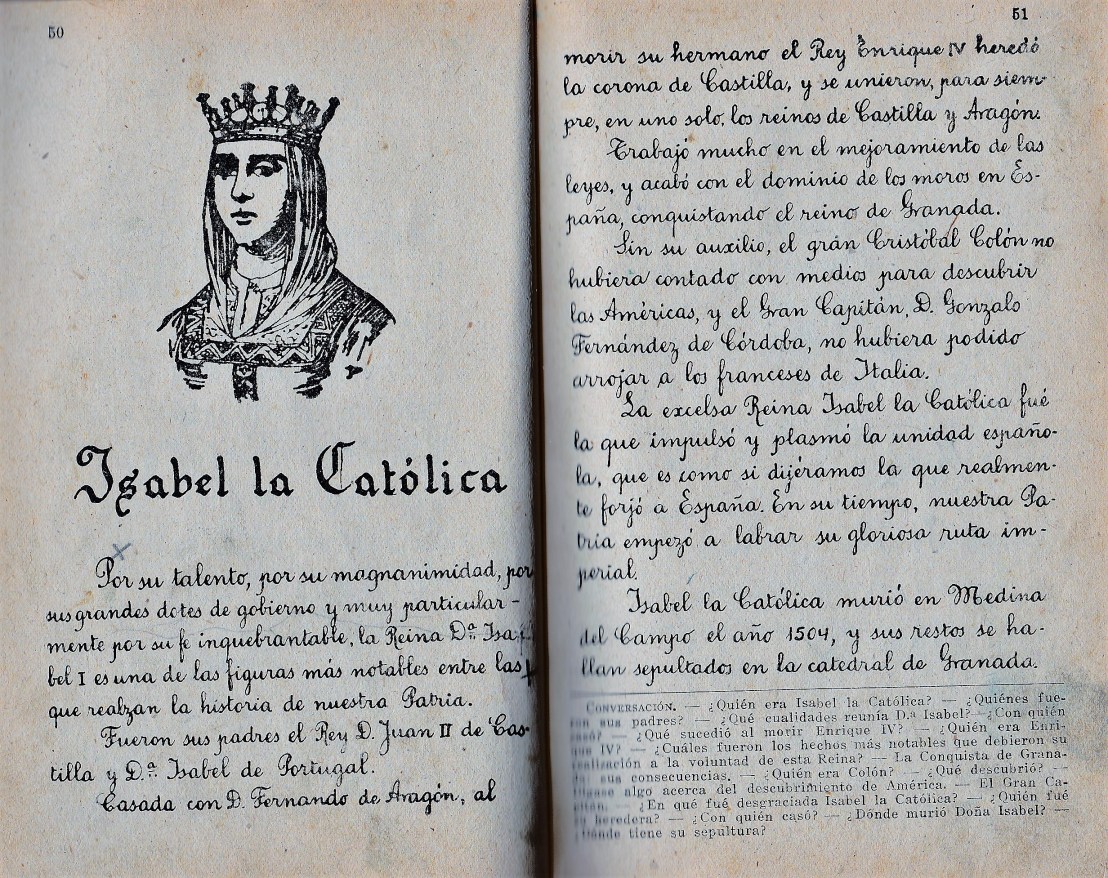 50
Isabel la Católica
Por su talento, por su magnanimidad, por
sus grandes dotes de gobierno y muy particular-
mente por su fe inquebrantable, la Reina D.ª Isa-
bel I es una de las figuras más notables entre las
que realzan la historia de nuestra Patria.
Fueron sus padres el Rey D. Juan II de Cas-
tilla y D.ª Isabel de Portugal.
Casada con D. Fernando de Aragón, al
51
morir su hermano el Rey Enrique IV heredó
la corona de Castilla, y se unieron, para siem-
pre, en uno solo, los reinos de Castilla y Aragón.
Trabajó mucho en el mejoramiento de las
leyes, y acabó con el dominio de los moros en Es-
paña, conquistando el reino de Granada.
Sin su auxilio, el gran Cristóbal Colón no
hubiera contado con medios para descubrir
las Américas, y el Gran Capitán, D. Gonzalo
Fernández de Córdoba, no hubiera podido
arrojar a los franceses de Italia.
La excelsa Reina Isabel la Católica fué
la que impulsó y plasmó la unidad españo-
la, que es como si dijéramos la que realmen-
te forjó a España. En su tiempo, nuestra Pa-
tria empezó a labrar su gloriosa ruta im-
perial.
Isabel la Católica murió en Medina
del Campo el año 1504, y sus restos se ha-
llan sepultados en la catedral de Granada.
CONVERSACIÓN. — ¿Quién era Isabel la Católica? — ¿Quiénes fue-
ron sus padres? — ¿Qué cualidades reunía D.ª Isabel? — ¿Con quién
casó? — ¿Qué sucedió al morir Enrique IV? — ¿Quién era Enri-
que IV? — ¿Cuáles fueron los hechos más notables que debieron su
realización a la voluntad de esta Reina? — La Conquista de Grana-
da: sus consecuencias. — ¿Quién era Colón? — ¿Qué descubrió? —
Dígase algo acerca del descubrimiento de América. — El Gran Ca-
pitán. — ¿En qué fué desgraciada Isabel la Católica? — ¿Quién fué
su heredera? — ¿Con quién casó? — ¿Dónde murió Doña Isabel? —
¿Dónde tiene su sepultura?